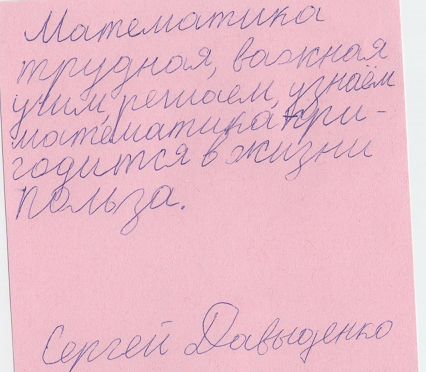 Математика
трудная, важная
учим, решаем, узнаём
математика при-
годится в жизни
польза.
Сергей Давыденко